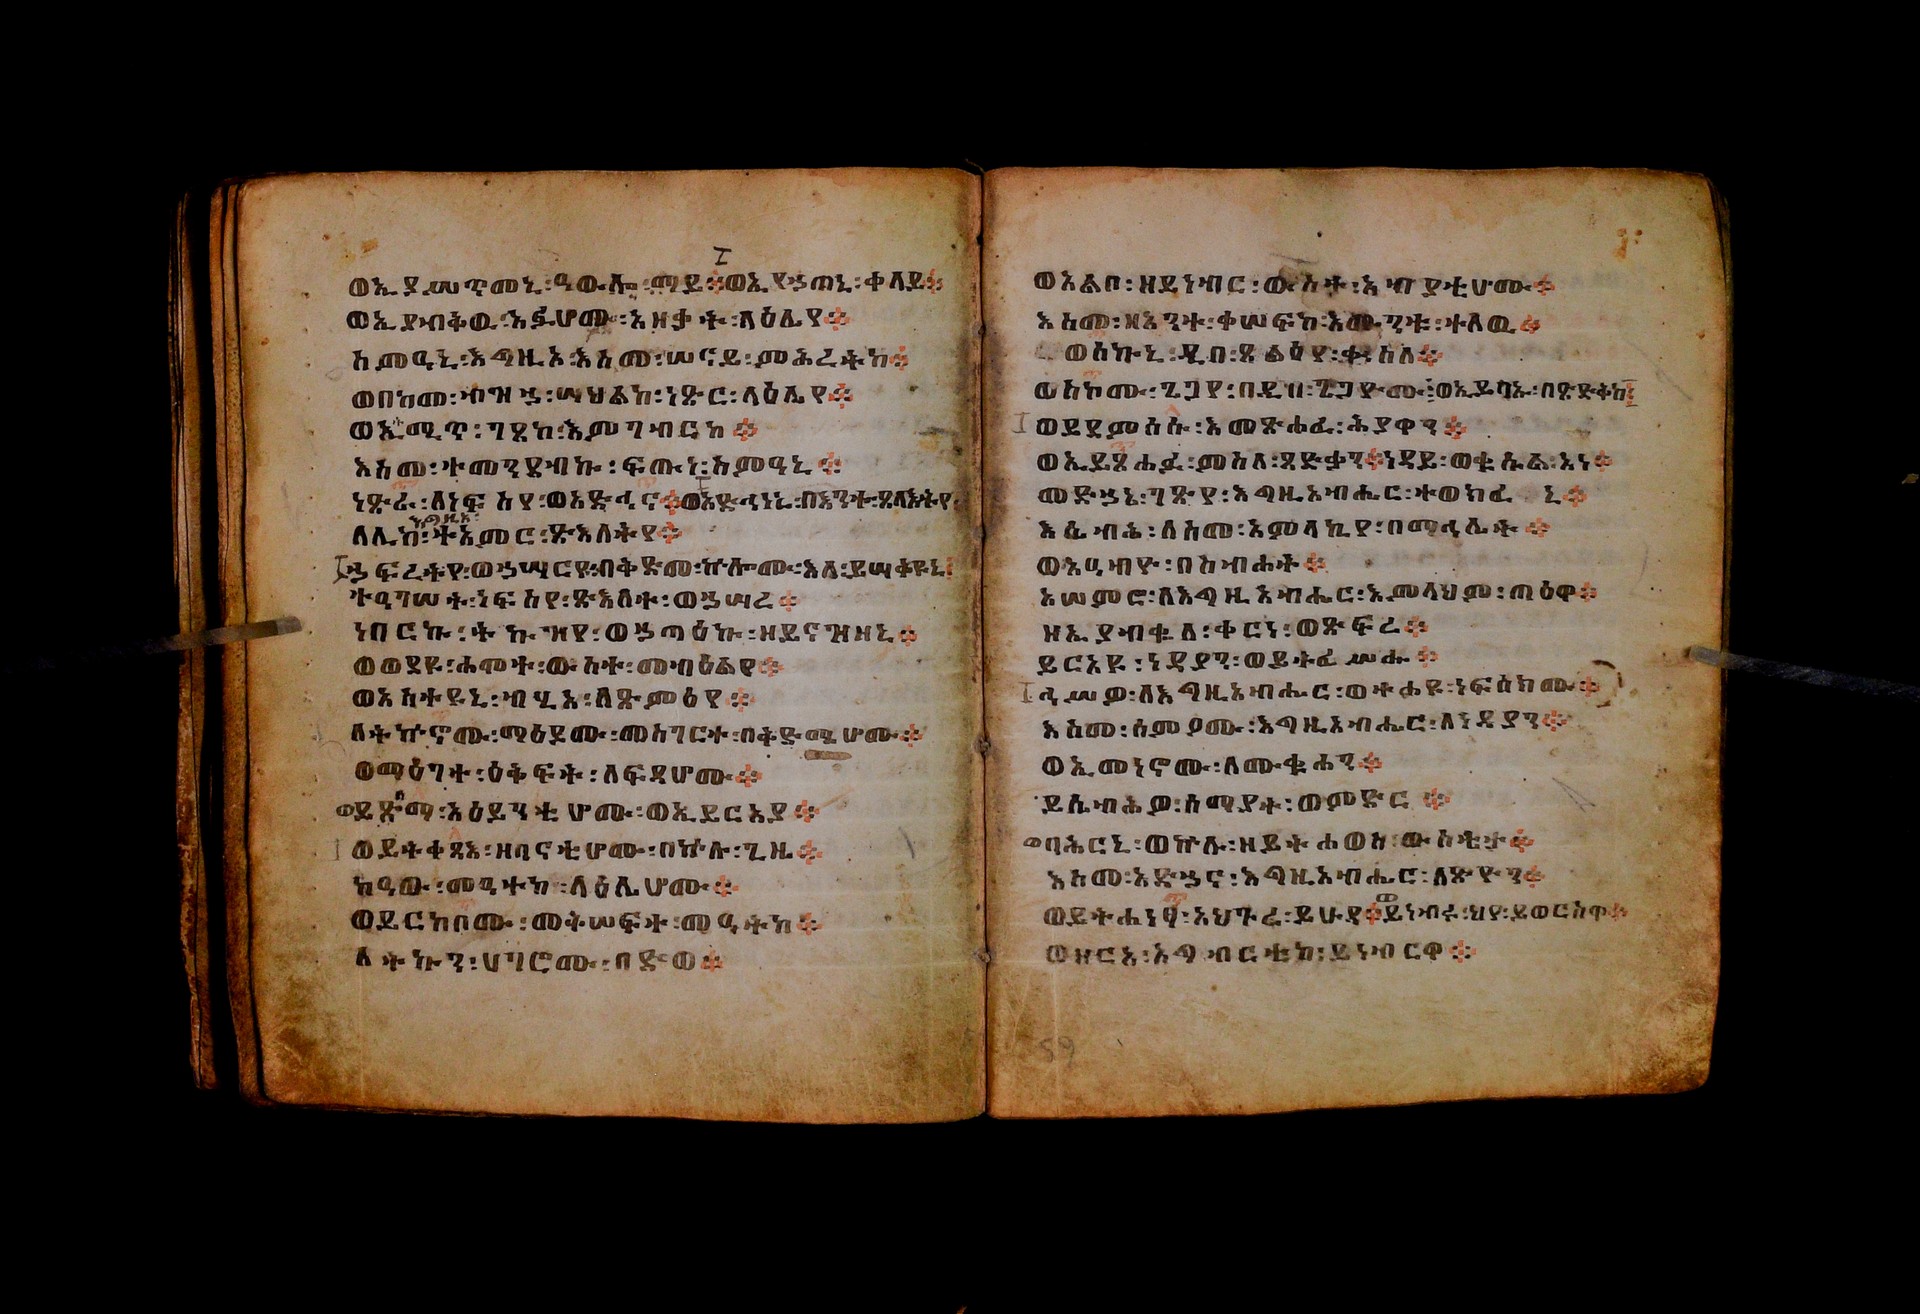 I
ወኢያሠጥመኒ፡ዓውሎ፡ማይ፨ወኢየኀጠኒ፡ቀላይ፨
ወኢያብቅዉ፡አፉሆሙ፡አዘቃት፡ላዕሌየ፨
ስምዓኒ፡እግዚኦ፡እስመ፡ሠናይ፡ምሕረትከ፨
ወበከመ፡ብዝኀ፡ሣህልከ፡ነጽር፡ላዕሌየ፨
ወኢሚጥ፡ገጸከ፡እምገብርከ፨
እስመ፡ተመንደብኩ፡ፍጡነ፡ስምዓኒ፨
ነጽራ፡ለነፍስየ፡ወአድኅና፨ወአድኅነኒ፡በእንተ፡ጸላእትየ፨
እግዚኦ፡
ለሊከ፡ተአምር፡ጽእለትየ፨
ኀፍረትየ፡ወኀሣርየ፡በቅድመ፡ኵሎሙ፡እለ፡ይሣቀዩኒ፨
ተዓገሠት፡ነፍስየ፡ጽእለተ፡ወኀሣረ፨
ነበርኩ፡ትኩዝየ፡ወኀጣዕኩ፡ዘይናዝዘኒ፨
ወወደዩ፡ሐሞተ፡ውስተ፡መብልዕየ፨
ወአስተዩኒ፡ብሂአ፡ለጽምዕየ፨
ለትኵኖሙ፡ማዕደሙ፡መስገርተ፡በቅድሜሆሙ፨
ወማዕገተ፡ዕቅፍት፡ለፍዳሆሙ፨
ወይጽልማ፡አዕይንቲሆሙ፡ወኢይርአያ፨
ወይትቀጻእ፡ዘባናቲሆሙ፡በኵሉ፡ጊዜ፨
ከዓው፡መዓተከ፡ላዕሌሆሙ፨
ወይርከቦሙ፡መቅሠፍተ፡መዓትከ፨
ለትኩን፡ሀገሮሙ፡በድወ፨
ወአልቦ፡ዘይነብር፡ውስተ፡አብያቲሆሙ፨
እስመ፡ዘአንተ፡ቀሠፍከ፡እሙንቱ፡ተለዉ፨
ወሰኩኒ፡ዲበ፡ጸልዕየ፡ቍስለ፨
ወስኮሙ፡ጌጋየ፡በዲበ፡ጌጋዮሙ፡ወኢይባኡ፡በጽድቅከ፨
ወይደምሰሱ፡እመጽሐፈ፡ሕያዋን፨
ወኢይጸሐፉ፡ምስለ፡ጻድቃን፨ነዳይ፡ወቁሱል፡አነ፨
መድኀኒ፡ገጽየ፡እግዚአብሔር፡ተወክፈኒ፨
እሴብሔ፡ለስመ፡አምላኪየ፡በማኅሌት፨
ወአዓብዮ፡በስብሐት፨
አሠምሮ፡ለእግዚአብሔር፡እምላህም፡ጣዕዋ፨
ዘኢያብቁለ፡ቀርነ፡ወጽፍረ፨
ይርአዩ፡ነዳያን፡ወይትፈሥሑ፨
ኅሠዎ፡ለእግዚአብሔር፡ወትሐዩ፡ነፍስክሙ፨
እስመ፡ሰምዖሙ፡እግዚአብሔር፡ለነዳያን፨
ወኢመነኖሙ፡ለሙቁሐን፨
ይሴብሕዎ፡ሰማያት፡ወምድር፨
ወባሕርኒ፡ወኵሉ፡ዘይትሐወስ፡ውስቴታ፨
እስመ፡አድኀና፡እግዚአብሔር፡ለጽዮን፨
ወይትሐነፃ፡አህጉረ፡ይሁዳ፨ወይነብሩ፡ህየ፡ይወርስዋ፨
ወዘርአ፡አግብርቲከ፡ይነብርዋ፨
59